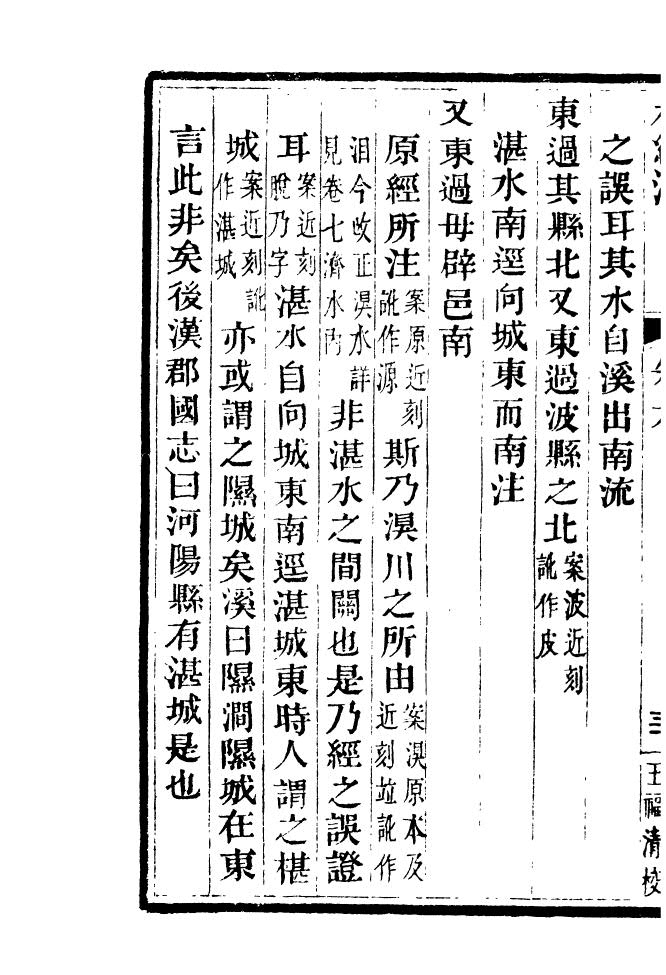 三 王福清校
之誤耳其水自溪出南流
東過其縣北又東過波縣之北案波近刻訛作皮
湛水南逕向城東而南注
又東過毋辟邑南
原經所注案原近刻訛作源斯乃湨川之所由案湨原本及近刻竝訛作
泪今改正湨水詳見卷七濟水內非湛水之間關也是乃經之誤證
耳案近刻脫乃字湛水自向城東南逕湛城東時人謂之椹
城案近刻訛作湛城亦或謂之隰城矣溪曰隰澗隰城在東
言此非矣後漢郡國志曰河陽縣有湛城是也